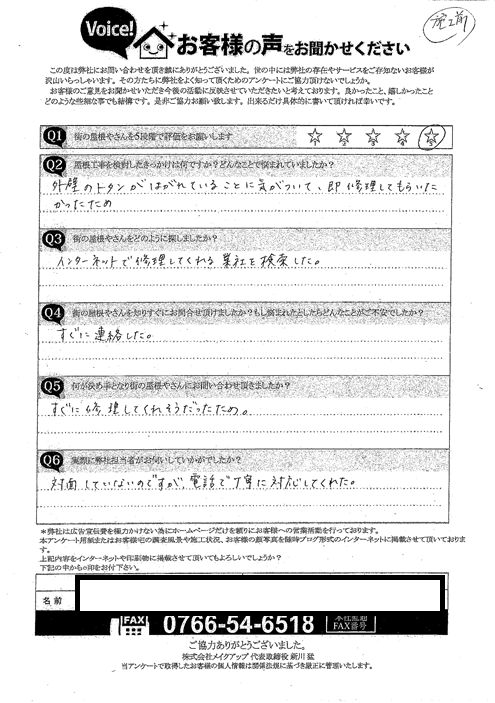 施工前
Voice!
お客様の声をお聞かせください
この度は弊社にお問い合わせを頂き誠にありがとうございました。世の中には弊社の存在やサービスをご存知ないお客様が
沢山いらっしゃいます。その方たちに弊社をよく知って頂くためのアンケートにご協力頂けないでしょうか。
お客様のご意見をお聞かせいただき今後の活動に反映させていただきたいと考えております。良かったこと、嬉しかったこと
どのような些細な事でも結構です。是非ご協力お願い致します。出来るだけ具体的に書いて頂ければ幸いです。
Q1 街の屋根やさんを5段階で評価をお願いします 1 2 3 4 5
Q2 屋根工事を検討したきっかけは何ですか？どんなことで悩まれていましたか？
外壁のトタンがはがれていることに気がついて、即修理してもらいた
かったため
Q3 街の屋根やさんをどのように探しましたか？
インターネットで修理してくれる業社を検索した。
Q4 街の屋根やさんを知りすぐにお問合せ頂けましたか？もし悩まれたとしたらどんなことがご不安でしたか？
すぐに連絡した。
Q5 何が決め手となり街の屋根やさんにお問い合わせ頂きましたか？
すぐに修理してくれそうだったため。
Q6 実際に弊社担当者がお伺いしていかがでしたか？
対面していないのですが、電話で丁寧に対応してくれた。
＊弊社は広告宣伝費を極力かけない為にホームページだけを頼りにお客様への営業活動を行っております。
本アンケート用紙またはお客様宅の調査風景や施工状況、お客様の顔写真を随時ブログ形式のインターネットに掲載させて頂いておりま
す。
上記内容をインターネットや印刷物に掲載させて頂いてもよろしいでしょうか？
下記の中から○印をお付け下さい。
名前
FAX 0766-54-6518 本社直通 FAX番号
ご協力ありがとうございました。
株式会社メイクアップ 代表取締役 新川 猛
当アンケートで取得したお客様の個人情報は関係法規に基づき厳正に管理いたします。